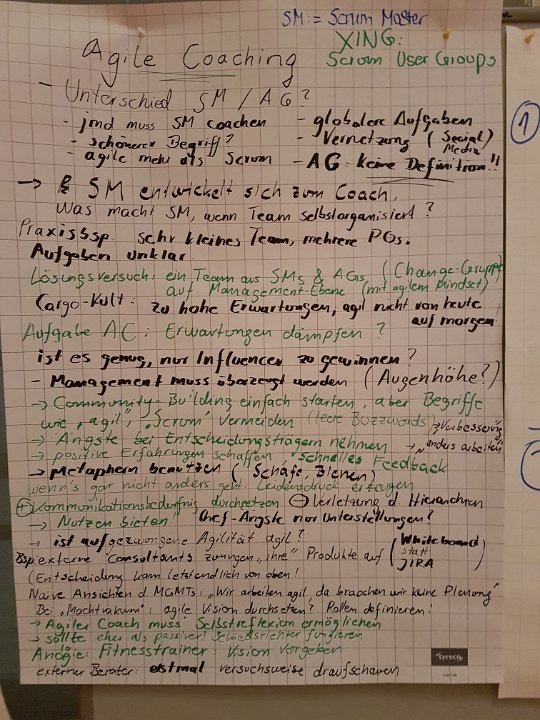 SM := Scrum Master
XING:
Scrum User Groups
Agile Coaching
- Unterschied SM / AG?
- jmd muss SM coachen
- schönerer Begriff?
- agile mehr als Scrum
- globalere Aufgaben
- Vernetzung (Social Media)
- AG: keine Definition!!
→ SM entwickelt sich zum Coach,
Was macht SM, wenn Team selbstorganisiert?
Praxisbsp: sehr kleines Team, mehrere POs.
Aufgaben unklar.
Lösungsversuch: ein Team aus SMs & AGs (Change-Gruppe
auf Management-Ebene (mit agilem Mindset)
Cargo-Kult: zu hohe Erwartungen, agil nicht von heute
auf morgen
Aufgabe AC: Erwartungen dämpfen?
ist es genug, nur Influencer zu gewinnen?
- Management muss überzeugt werden (Augenhöhe?)
→ Community-Building einfach starten, aber Begriffe
wie "agil", "Scrum" vermeiden (leere Buzzwords) → Verbesserung
→ Ängste bei Entscheidungsträgern nehmen → "anders arbeiten
→ positive Erfahrungen schaffen, schnelles Feedback
→ Metaphern benutzen (Schafe, Bienen)
wenn's gar nicht anders geht: Leidensdruck erzeugen
⊕ Kommunikationsbedürfnis durchsetzen ⊖ Verletzung d. Hierarchien
→ Nutzen bieten! Chef-Ängste nur Unterstellungen?
→ ist aufgezwungene Agilität agil?
Bsp externe Consultants zwingen "ihre" Produkte auf (Whiteboard
statt
JIRA)
(Entscheidung kam letztendlich von oben!
Naive Ansichten d MGMTs: "Wir arbeiten agil, da brauchen wir keine Planung"
Bei "Machtvakuum": agile Vision durchsetzen? Rollen definieren!
→ Agiler Coach muss Selbstreflexion ermöglichen
→ sollte eher als passiver Schiedsrichter fungieren
Analogie: Fitnesstrainer: Vision vorgeben
externer Berater: erstmal versuchsweise draufschauen
lyreco
1